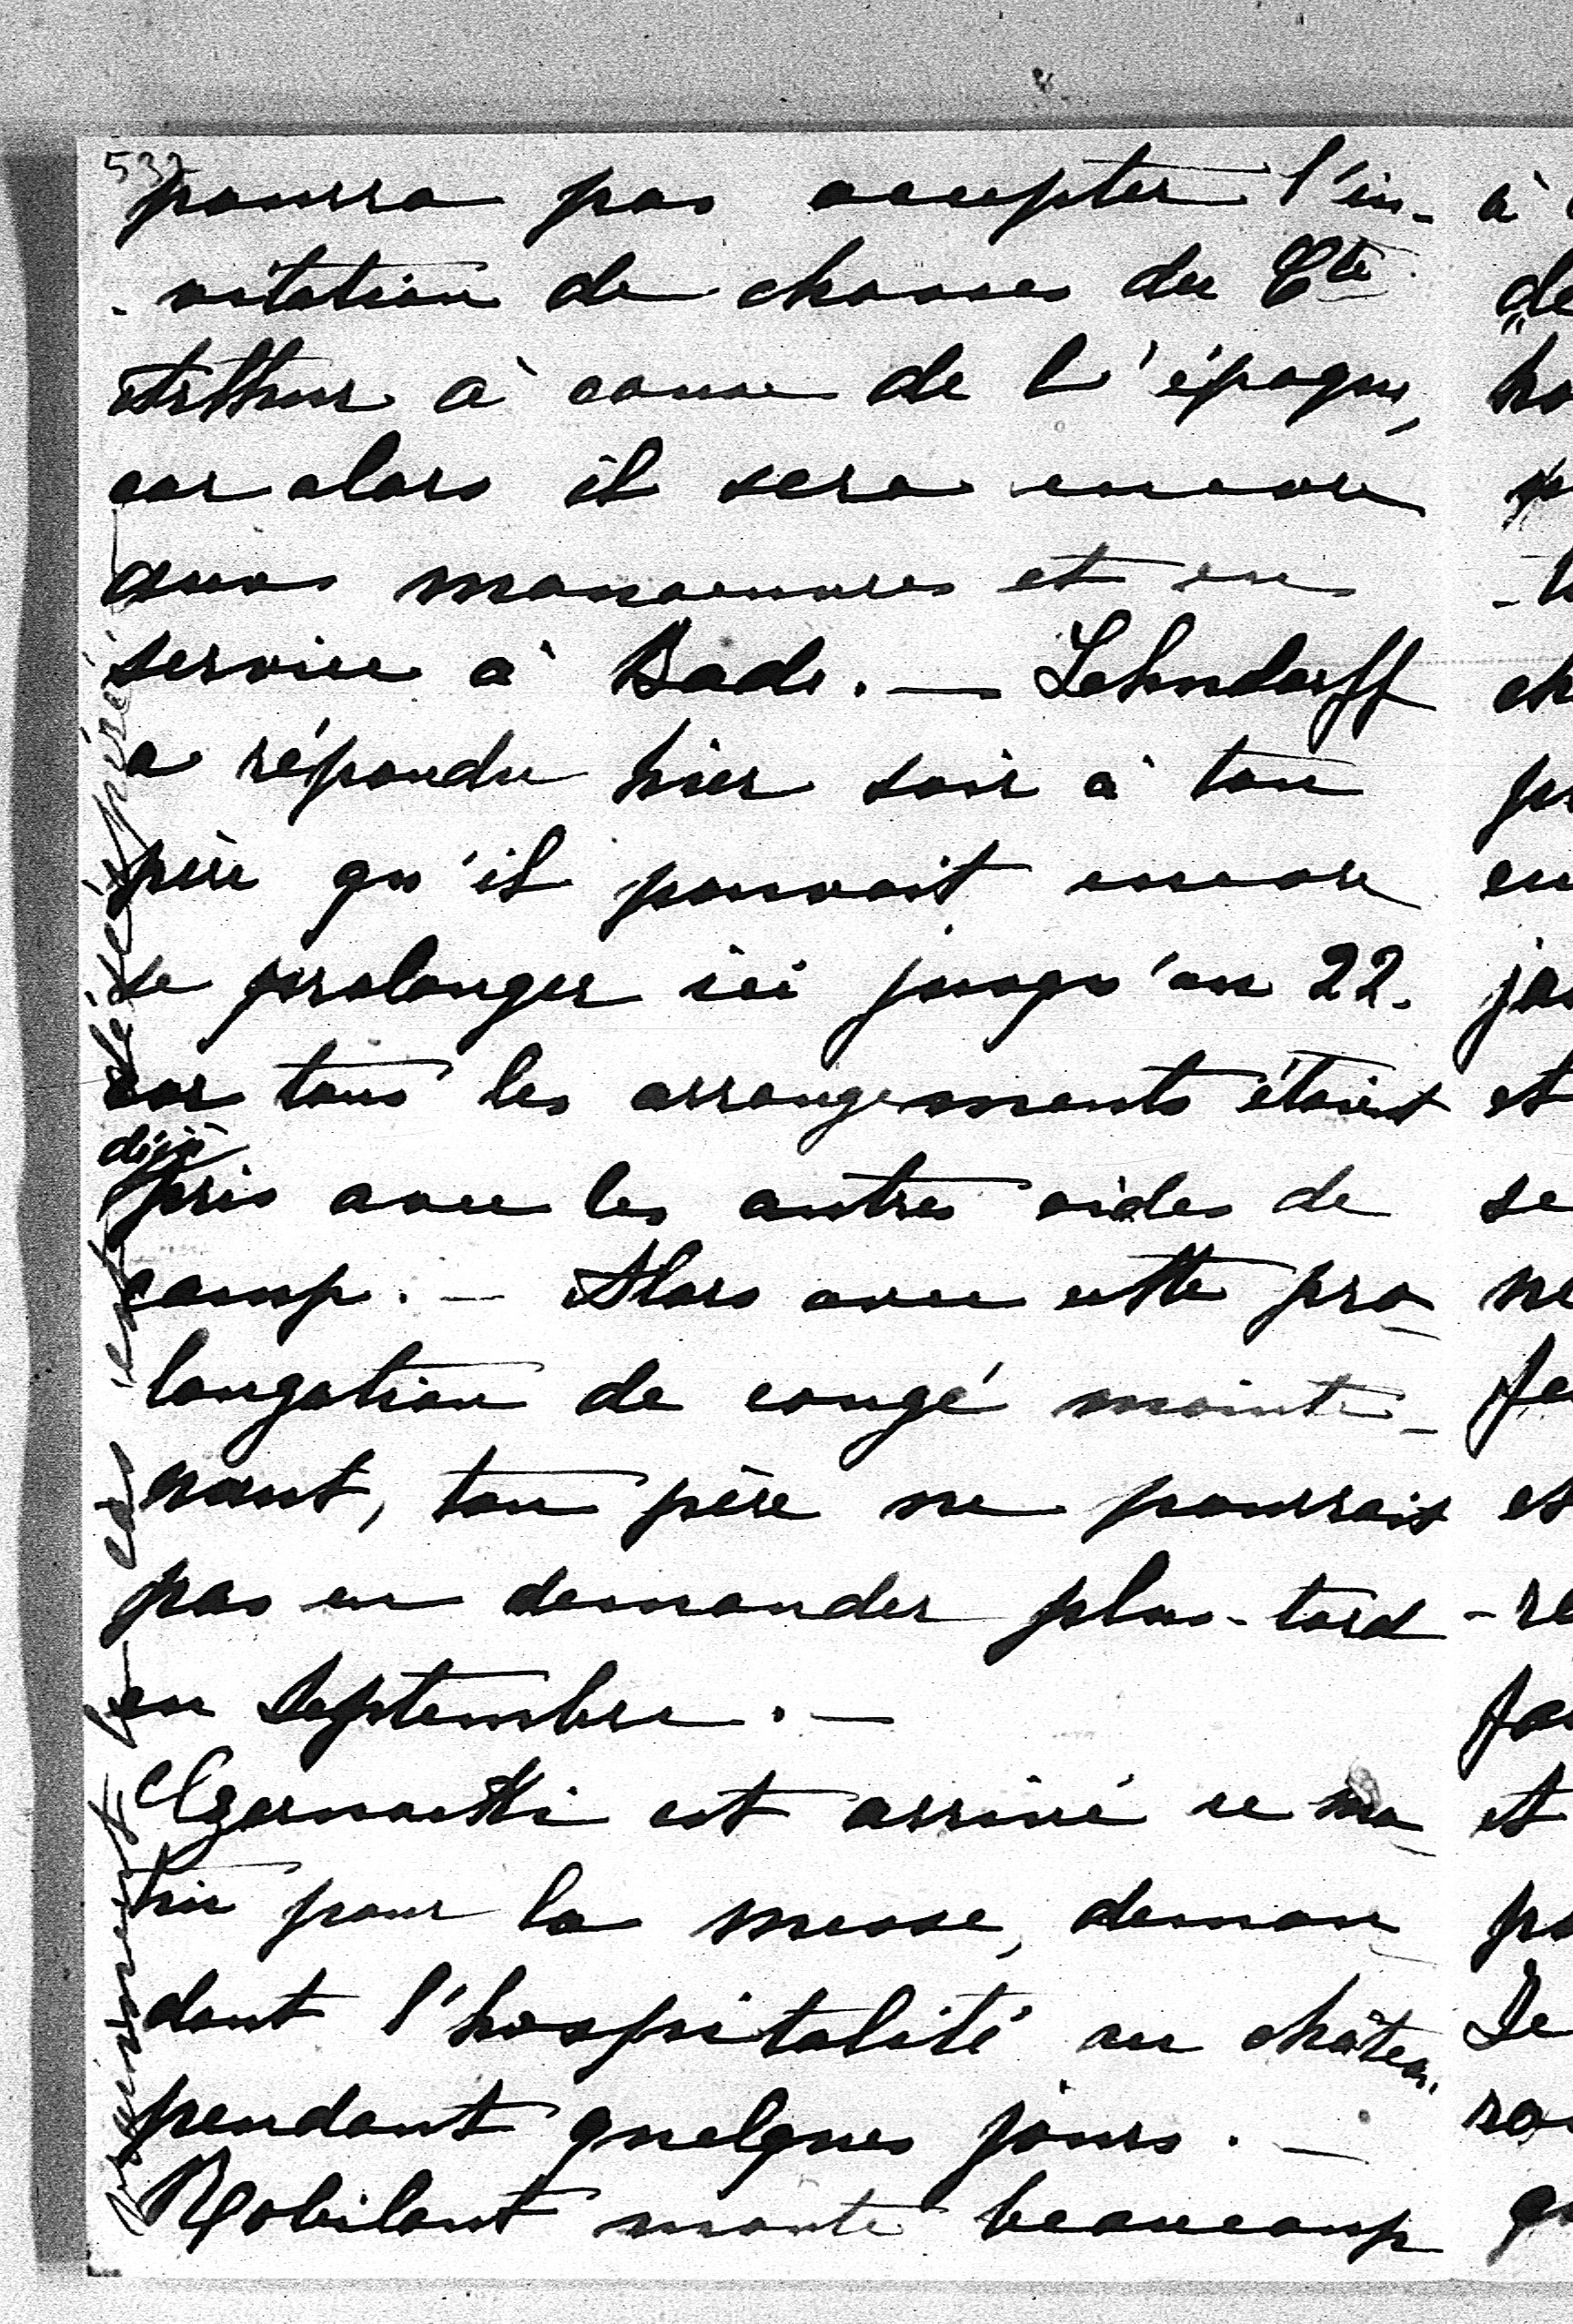 532
pourra pas accepter l'in-
-vitation de chasses du Cte
Arthur à cause de l'époque,
car alors il sera encore
aux manoeuvres et en
service à Bade. — Lehndorff
a répondu hier soir à ton
père qu'il pouvait encore
se prolonger ici jusqu'au 22.
car tous les arrangements étaient
déjà
pris avec les autres aides de
camp. — Alors avec cette pro-
longation de congé mainte-
nant, ton père ne pourrait
pas en demander plus-tard
en Septembre. —
Czernacki est arrivé ce ma-
tin pour la messe, deman-
dant l'hospitalité au château
pendant quelques jours. —
Robilant monte beaucoup
à
de
et
se
ne
et
et